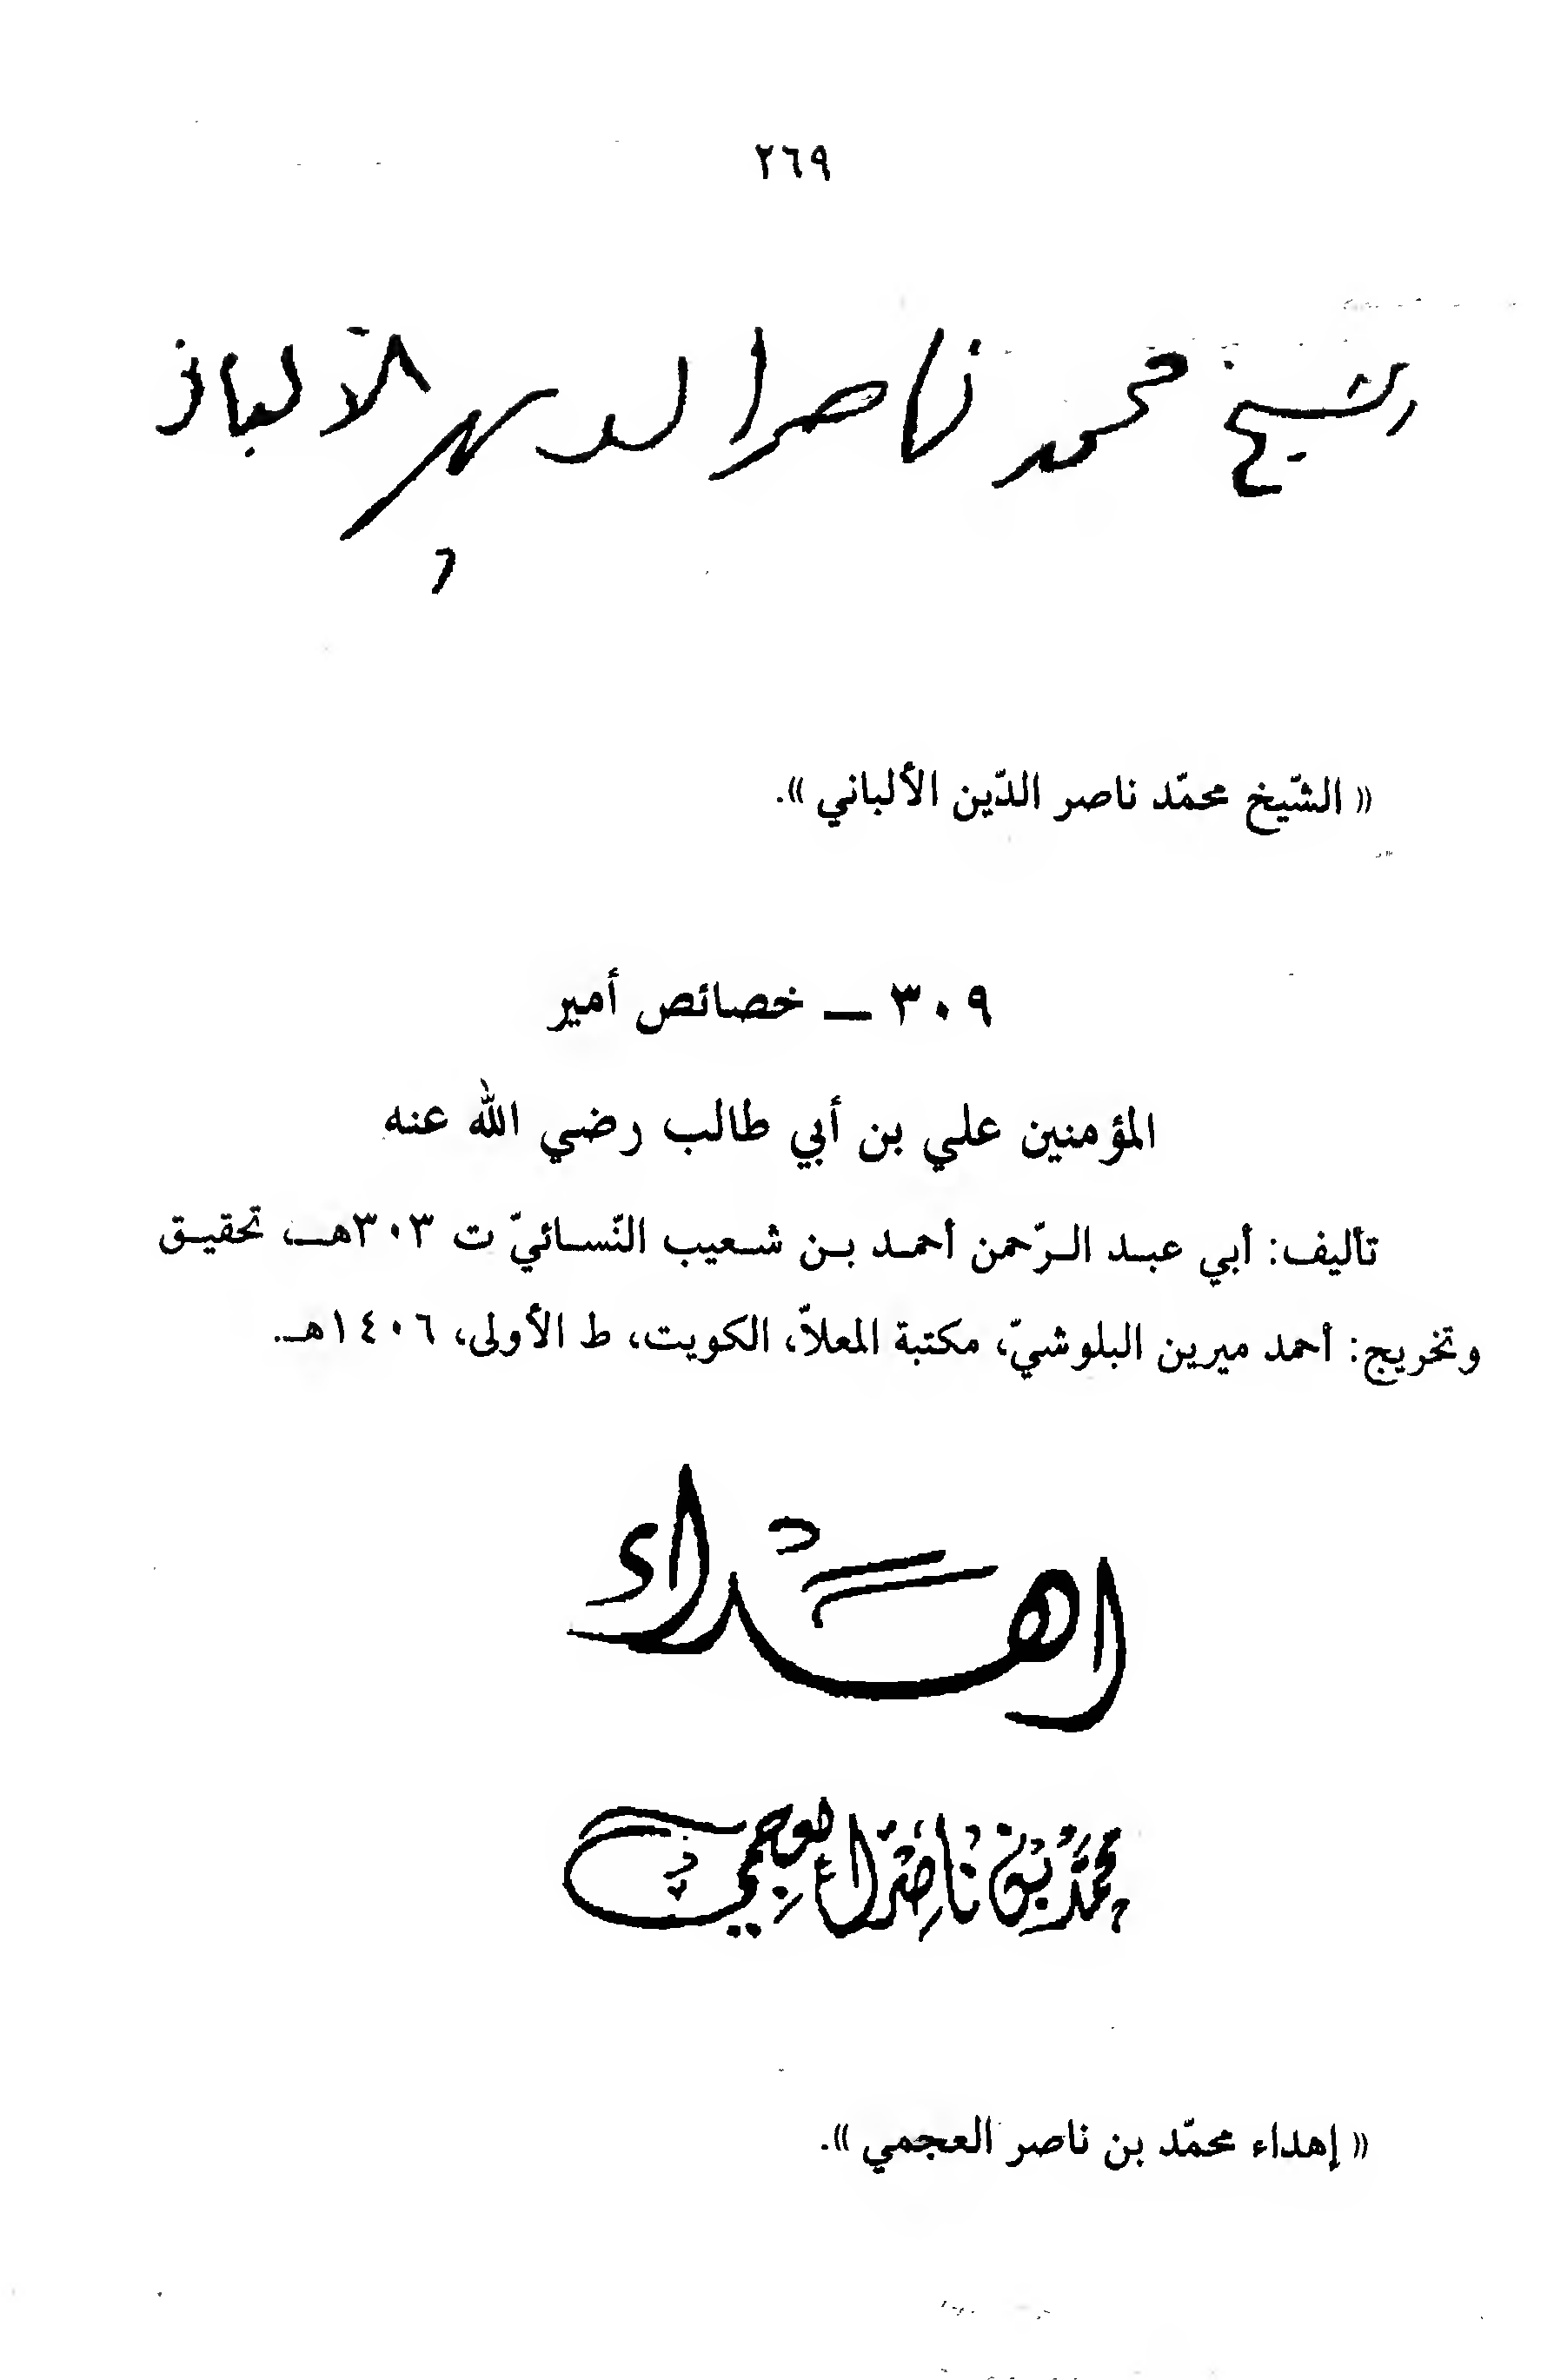 ٢٦٩
الشيخ محمد ناصر الدين الألباني
« الشّيخ محمّد ناصر الدّين الألباني ».
٣٠٩ — خصائص أمير
المؤمنين علي بن أبي طالب رضي الله عنه
تأليف: أبي عبـد الـرّحمن أحمـد بـن شـعيب النّسـائيّ ت ٣٠٣هـ، تحقيـق
وتخريج: أحمد ميرين البلوشيّ، مكتبة المعلاّ، الكويت، ط الأولى، ١٤٠٦هـ.
اهداء
محمد بن ناصر العجمي
« إهداء محمّد بن ناصر العجمي ».